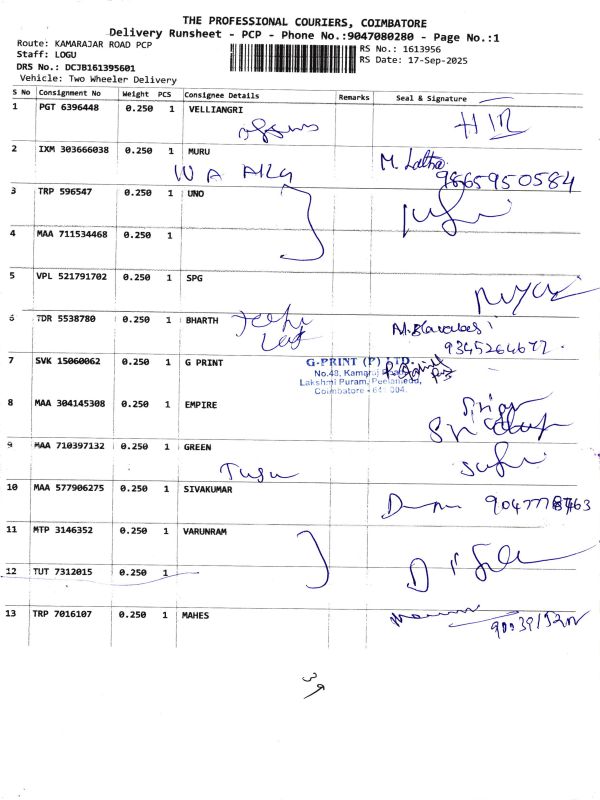 THE PROFESSIONAL COURIERS, COIMBATORE
Delivery Runsheet - PCP - Phone No.:9047080280 - Page No.:1
Route: KAMARAJAR ROAD PCP
Staff: LOGU
DRS No.: DCJB161395601
Vehicle: Two Wheeler Delivery
RS No.: 1613956
RS Date: 17-Sep-2025
S No Consignment No Weight PCS Consignee Details Remarks Seal & Signature
1 PGT 6396448 0.250 1 VELLIANGRI
2 IXM 303666038 0.250 1 MURU
M. Latha
9865950584
3 TRP 596547 0.250 1 UNO
4 MAA 711534468 0.250 1
5 VPL 521791702 0.250 1 SPG
6 TDR 5538780 0.250 1 BHARTH
9345264677
7 SVK 15060062 0.250 1 G PRINT
G-PRINT (P) LTD.
No.48, Kamaraj Road,
Lakshmi Puram, Peelamedu,
Coimbatore - 641 004.
8 MAA 304145308 0.250 1 EMPIRE
9 MAA 710397132 0.250 1 GREEN
10 MAA 577906275 0.250 1 SIVAKUMAR
11 MTP 3146352 0.250 1 VARUNRAM
12 TUT 7312015 0.250 1
13 TRP 7016107 0.250 1 MAHES
39